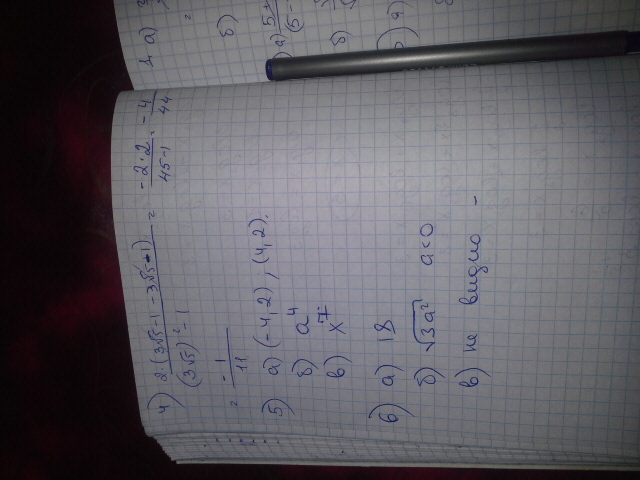 4) 2·(3√5-1-3√5-1) / (3√5)²-1 = -2·2 / 45-1 = -4 / 44
= -1 / 11
5) а) (-4,2), (4,2).
б) a⁴
в) x⁷
6) а) 18
б) √3a² a<0
в) не видно -
1 а)
б)
а) 5
б)
а)